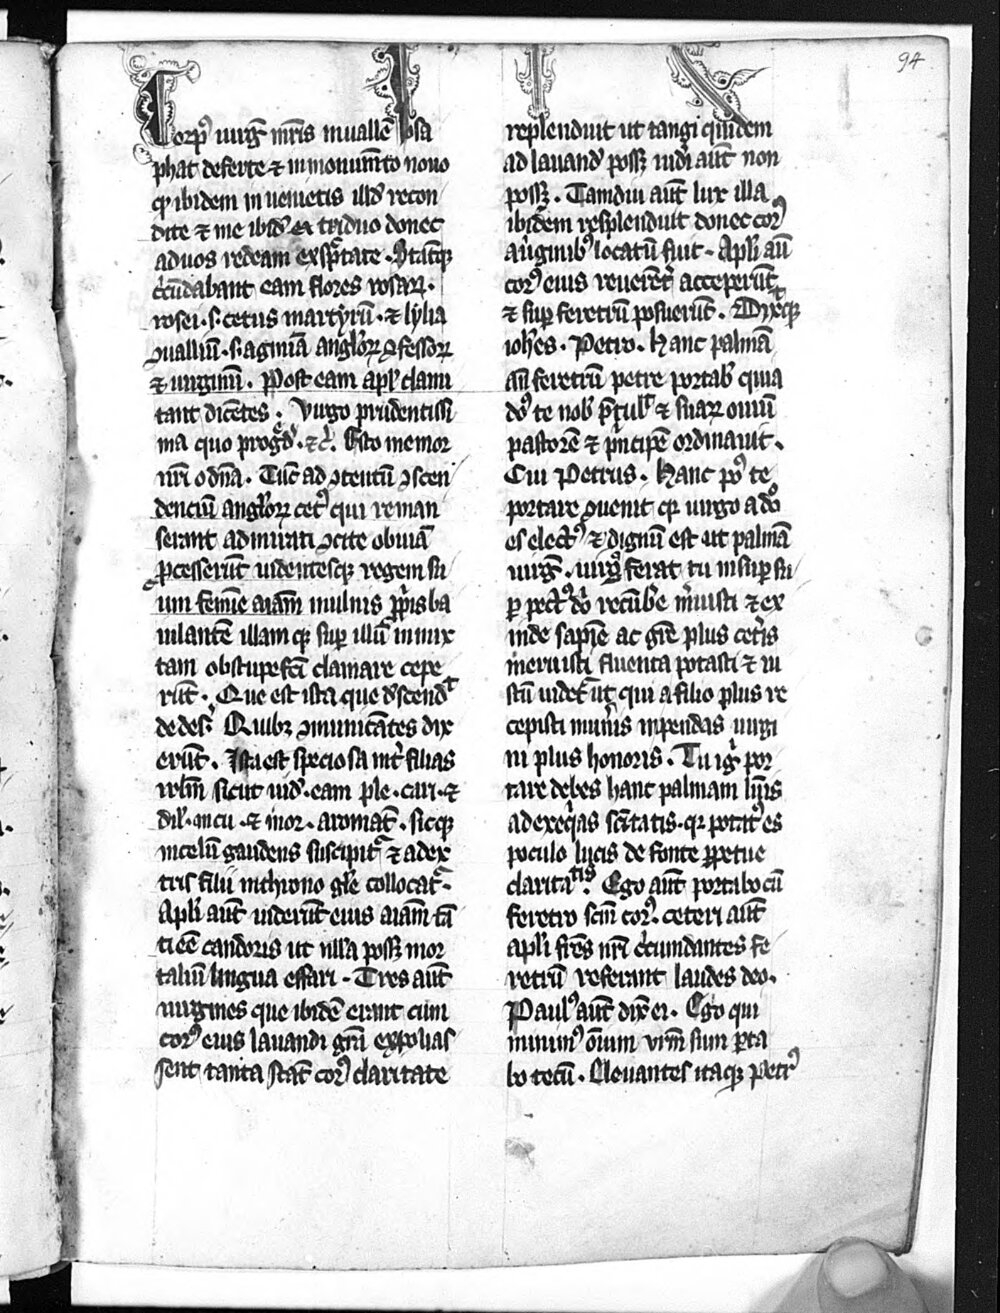 94
Corpꝰ uirgͥ. mr̄is in uallē iosa
phat deferte ⁊ in monumēto nouo
qđ ibidem inuenietis illđ recon
dite ⁊ me ibiđ ex triduo donec
ad uos redeam exspectate. Statimqꝫ
cͥcūdabant eam flores rosaꝝ.
rosei .s. cetus martyrū. ⁊ lylia
ꝯualliū .s. agmīa angl̓oꝝ ꝯfessoꝝ
⁊ uirginū. Post eam apl̓i clami
tant dicētes. Virgo prudentissi
ma quo progͣđ. ⁊c̄. Esto memor
nr̄i o dn̄a. Tūc ad ꝯcentū ꝯscen
denciū angl̓oꝝ cetꝰ qui reman
serant admirati ꝯcite obuiā
ꝓcesserūt uidentesqꝫ regem su
um femīe aīam in ulnis ꝓpͥis ba
iulantē illamqꝫ suꝑ illū innix
tam obstupefc̄i clamare cepe
rūt. Que est ista que aͣscendͭ
de desͬ. Quibꝫ ꝯmunicātes dix
erūt. Ista est speciosa int̓ filias
irl̓m sicut uiđ. eam ple. cari. ⁊
dil̓. in cu. ⁊ mor. aromat̄. sicqꝫ
in celū gaudens suscipitᷣ ⁊ a dex
tris filii in throno gl̓e collocatᷣ.
Apl̓i aūt uiderūt eius aīam tā
ti eē candoris ut nlla possꝫ mor
taliū lingua effari. Tres aūt
uirgines que ibidē erant cum
corꝰ eius lauandi grā expolias
sent tanta stat̄ corꝰ claritate
resplenduit ut tangi quidem
ad lauanđ possꝫ uideri aūt non
possꝫ. Tamdiu aūt lux illa
ibidem resplenduit donec corꝰ
a uͥginibꝰ locatū fuit. Apl̓i aū
corꝰ eius reuerēt̓ acceperūt
⁊ suꝑ feretrū posuerūt. Dixitqꝫ
ioh̄es. Petro. Hanc palmā
an̄ feretrū petre portab̓ quia
dn̄s te nob̓ p̄tulͭ ⁊ suaꝝ ouiū
pastorē ⁊ pͥncipē ordinauit.
Cui Petrus. Hanc poꝰ te
portare ꝯuenit qꝛ uirgo a do
es electꝰ ⁊ dignū est ut palmā
uirgͥ. uirgͦ ferat tu insuꝑ su
ꝑ pectꝰ dn̄i recūbe̓ m̓uisti ⁊ ex
inde sapīe ac grē plus cet̓is
meruisti fluenta potasti ⁊ iu
stū uidet̄ ut qui a filio plus re
cepisti mun̓is inpendas uirgi
ni plus honoris. Tu igͥ por
tare debes hanc palmam lum̄is
ad exeqͥas sc̄itatis. qꝛ potatꝰ es
poculo lucis de fonte ꝑpetue
claritaͭⁱˢ. Ego aūt portabo cū
feretro sc̄m corꝰ. ceteri aūt
apl̓i fr̄es nr̄i cͥcumdantes fe
retrū referant laudes deo.
Paulꝰ aūt dix̄ ei. Ego qui
minimꝰ oīum vr̄m sum ꝑta
bo tecū. Eleuantes itaqꝫ Petrꝰ